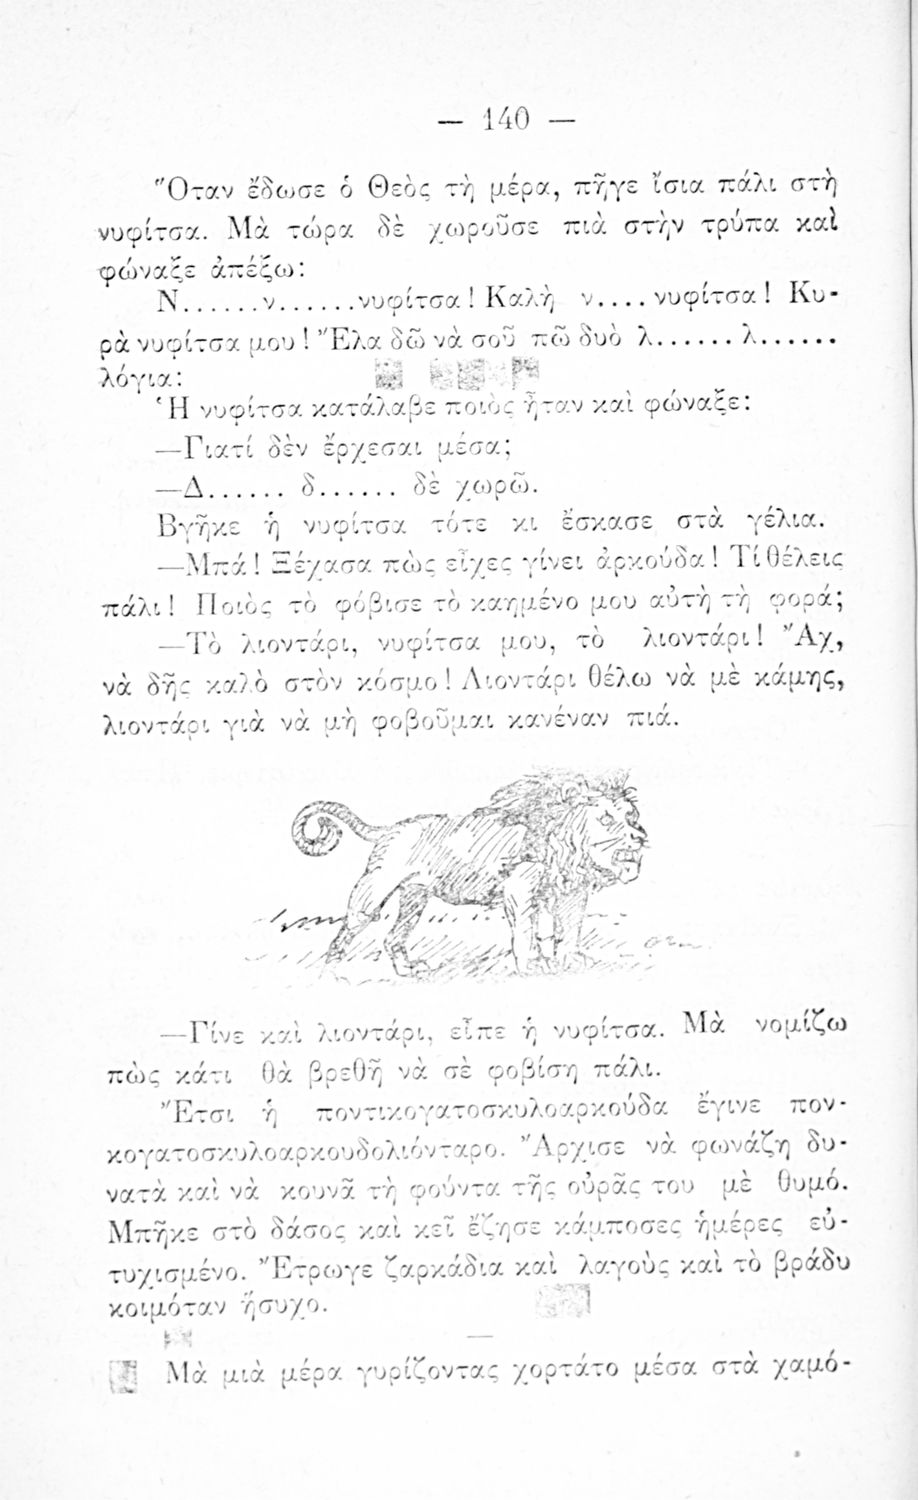 — 140 —
Ὅταν ἔδωσε ὁ Θεὸς τὴ μέρα, πῆγε ἴσια πάλι στὴ
νυφίτσα. Μὰ τώρα δὲ χωροῦσε πιὰ στὴν τρύπα καὶ
φώναξε ἀπέξω:
Ν......ν......νυφίτσα! Καλὴ ν....νυφίτσα! Κυ-
ρὰ νυφίτσα μου! Ἔλα δῶ νὰ σοῦ πῶ δυὸ λ......λ......
λόγια:
Ἡ νυφίτσα κατάλαβε ποιὸς ἦταν καὶ φώναξε:
—Γιατί δὲν ἔρχεσαι μέσα;
—Δ...... δ...... δὲ χωρῶ.
Βγῆκε ἡ νυφίτσα τότε κι ἔσκασε στὰ γέλια.
—Μπά! Ξέχασα πὼς εἶχες γίνει ἀρκούδα! Τί θέλεις
πάλι! Ποιὸς τὸ φόβισε τὸ καημένο μου αὐτὴ τὴ φορά;
—Τὸ λιοντάρι, νυφίτσα μου, τὸ λιοντάρι! Ἄχ,
νὰ δῆς καλὸ στὸν κόσμο! Λιοντάρι θέλω νὰ μὲ κάμης,
λιοντάρι γιὰ νὰ μὴ φοβοῦμαι κανέναν πιά.
—Γίνε καὶ λιοντάρι, εἶπε ἡ νυφίτσα. Μὰ νομίζω
πὼς κάτι θὰ βρεθῆ νὰ σὲ φοβίση πάλι.
Ἔτσι ἡ ποντικογατοσκυλοαρκούδα ἔγινε πον-
κογατοσκυλοαρκουδολιόνταρο. Ἄρχισε νὰ φωνάζη δυ-
νατὰ καὶ νὰ κουνᾶ τὴ φούντα τῆς οὐρᾶς του μὲ θυμό.
Μπῆκε στὸ δάσος καὶ κεῖ ἔζησε κάμποσες ἡμέρες εὐ-
τυχισμένο. Ἔτρωγε ζαρκάδια καὶ λαγοὺς καὶ τὸ βράδυ
κοιμόταν ἥσυχο.
—
Μὰ μιὰ μέρα γυρίζοντας χορτάτο μέσα στὰ χαμό-